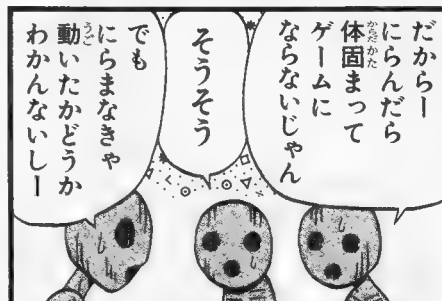 だからー
にらんだら
体固まって
からだかた
ゲームに
ならないじゃん
そうそう
でも
にらまなきゃ
動いたかどうか
うご
わかんないしー